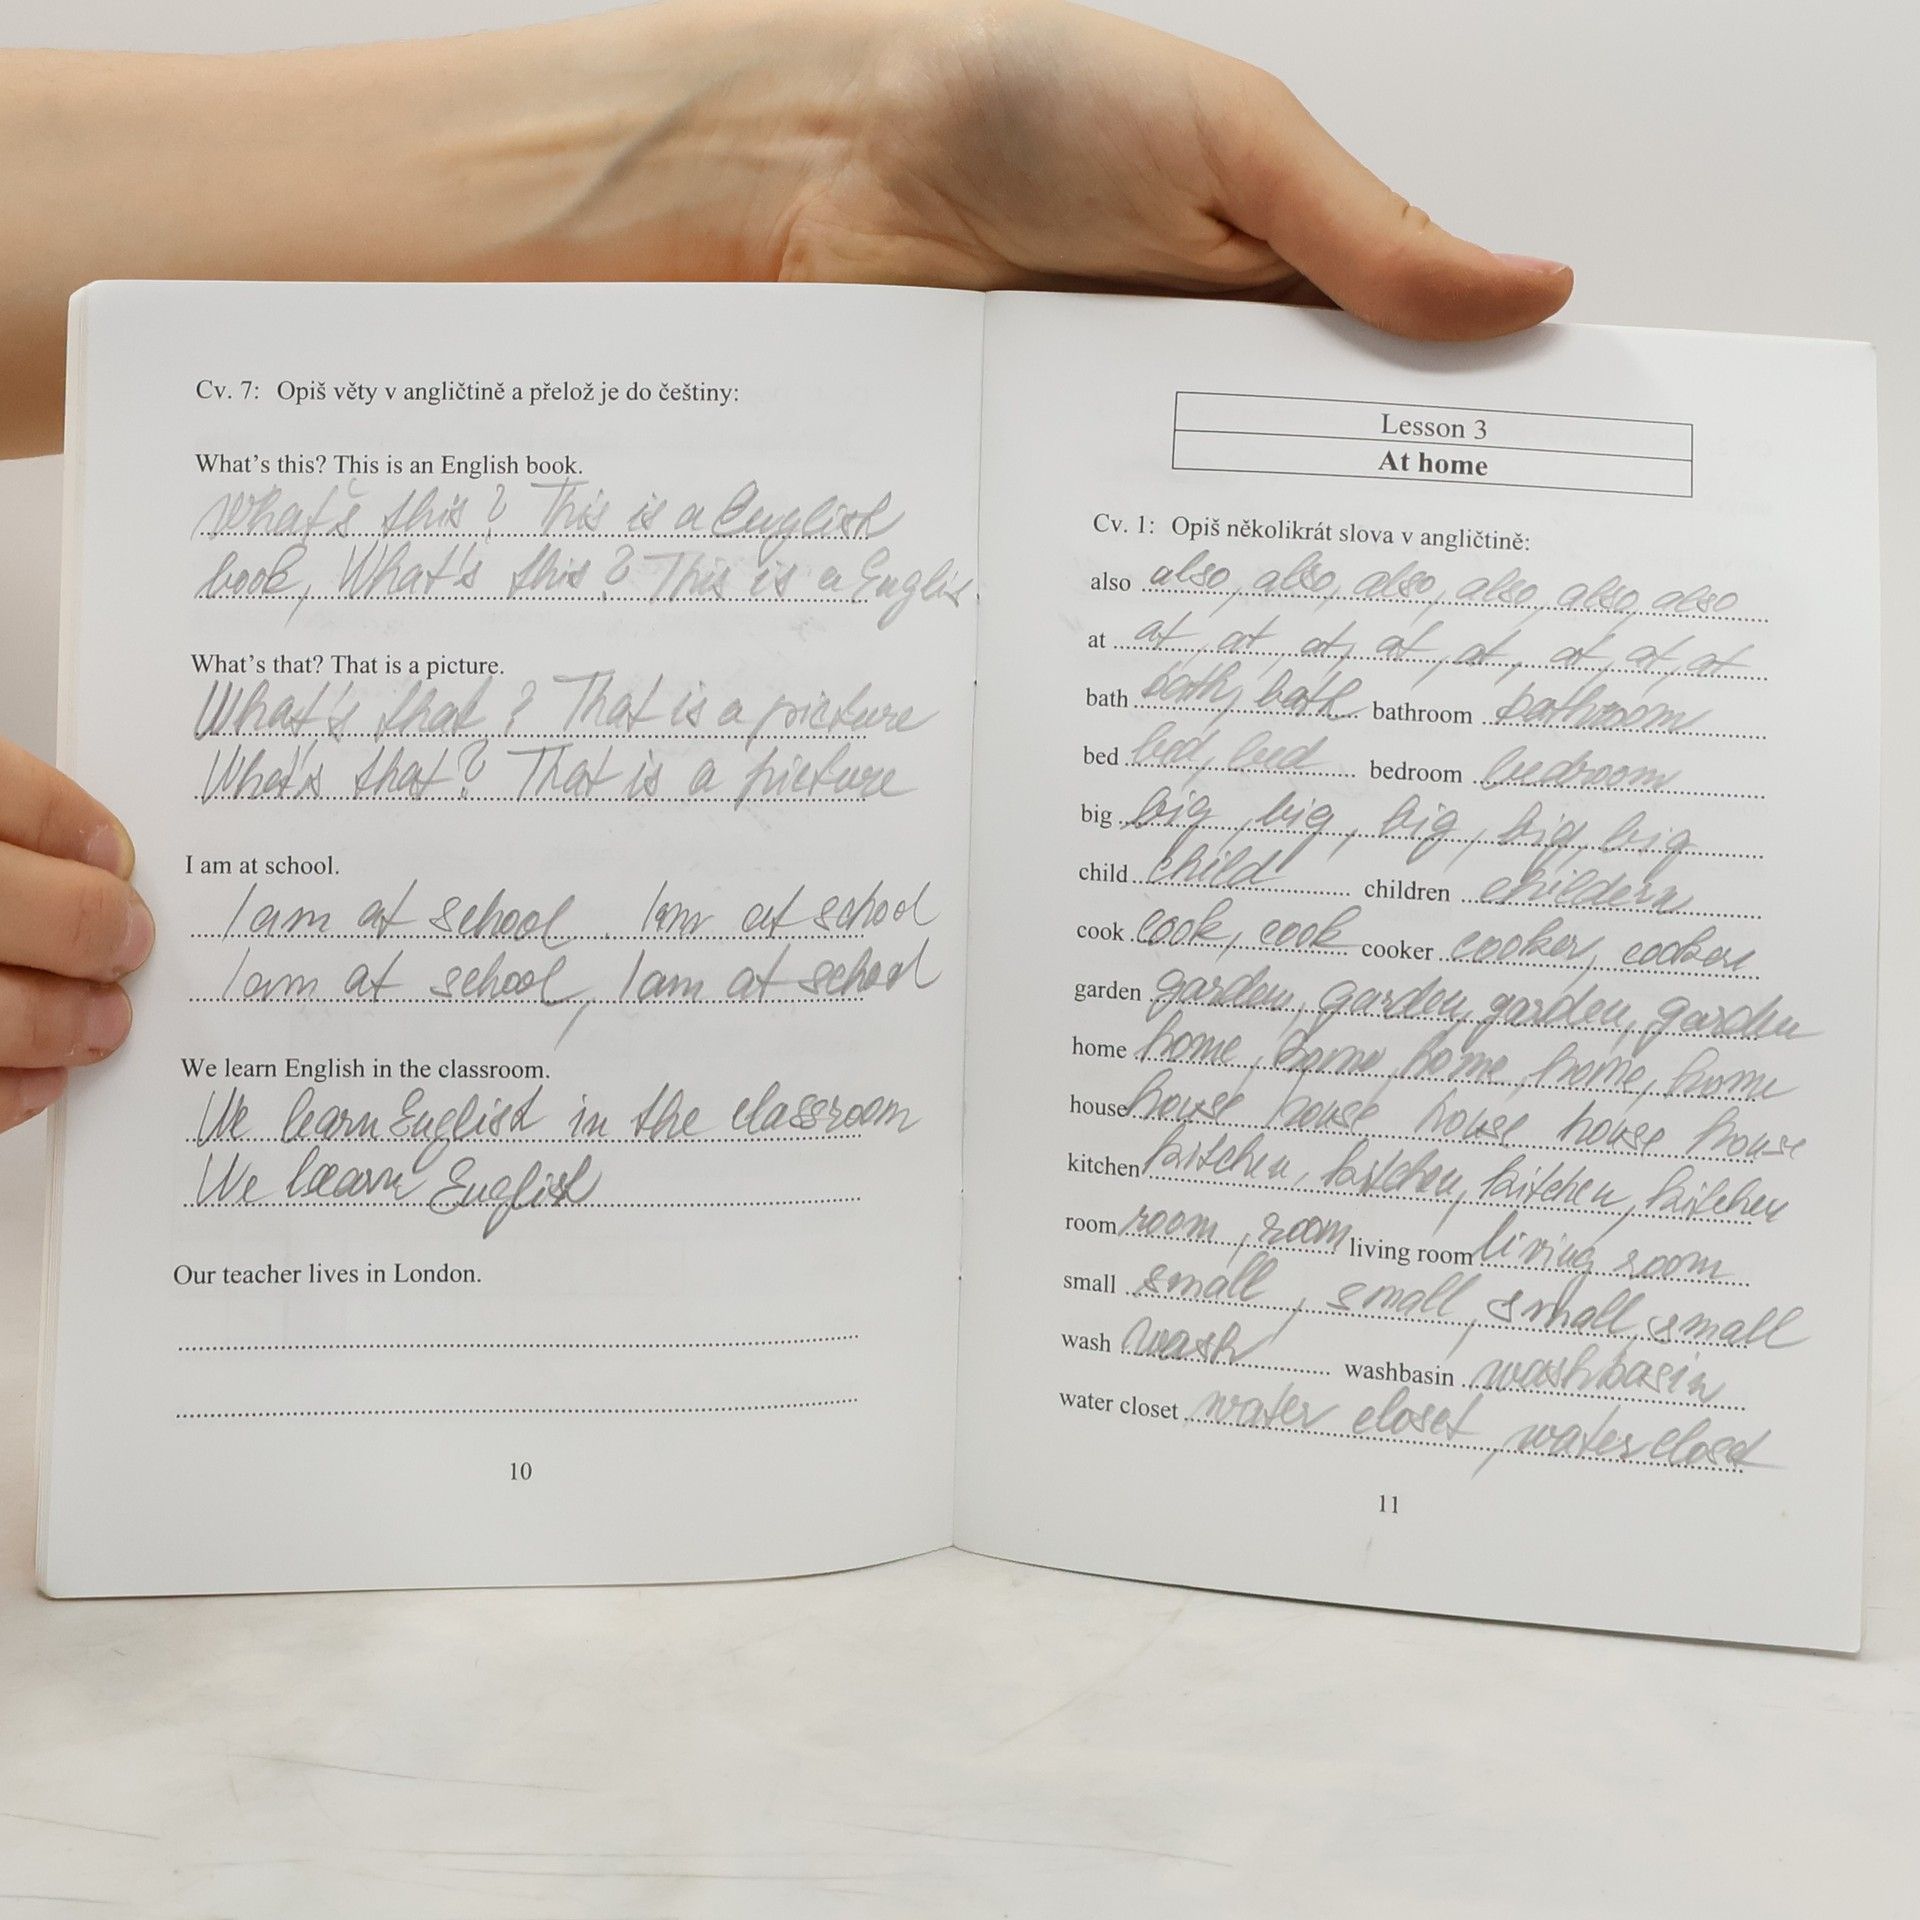 Cv. 7: Opiš věty v angličtině a přelož je do češtiny:
What's this? This is an English book.
What's this? This is a English
book, What's this? This is a Englis
What's that? That is a picture.
What's that? That is a picture
What's that? That is a picture
I am at school.
I am at school. I am at school
I am at school, I am at school
We learn English in the classroom.
We learn English in the classroom
We learn English
Our teacher lives in London.
10
Lesson 3
At home
Cv. 1: Opiš několikrát slova v angličtině:
also also, also, also, also, also, also
at at, at, at, at, at, at, at, at
bath bath, bath bathroom bathroom
bed bed, bed bedroom bedroom
big big, big, big, big, big
child child children childern
cook cook, cook cooker cooker, cooker
garden garden, garden, garden, garden
home home, home, home, home, home
house house house house house house
kitchen kitchen, kitchen, kitchen, kitchen
room room, room living room living room
small small, small, small, small
wash wash washbasin washbasin
water closet water closet, water closet
11